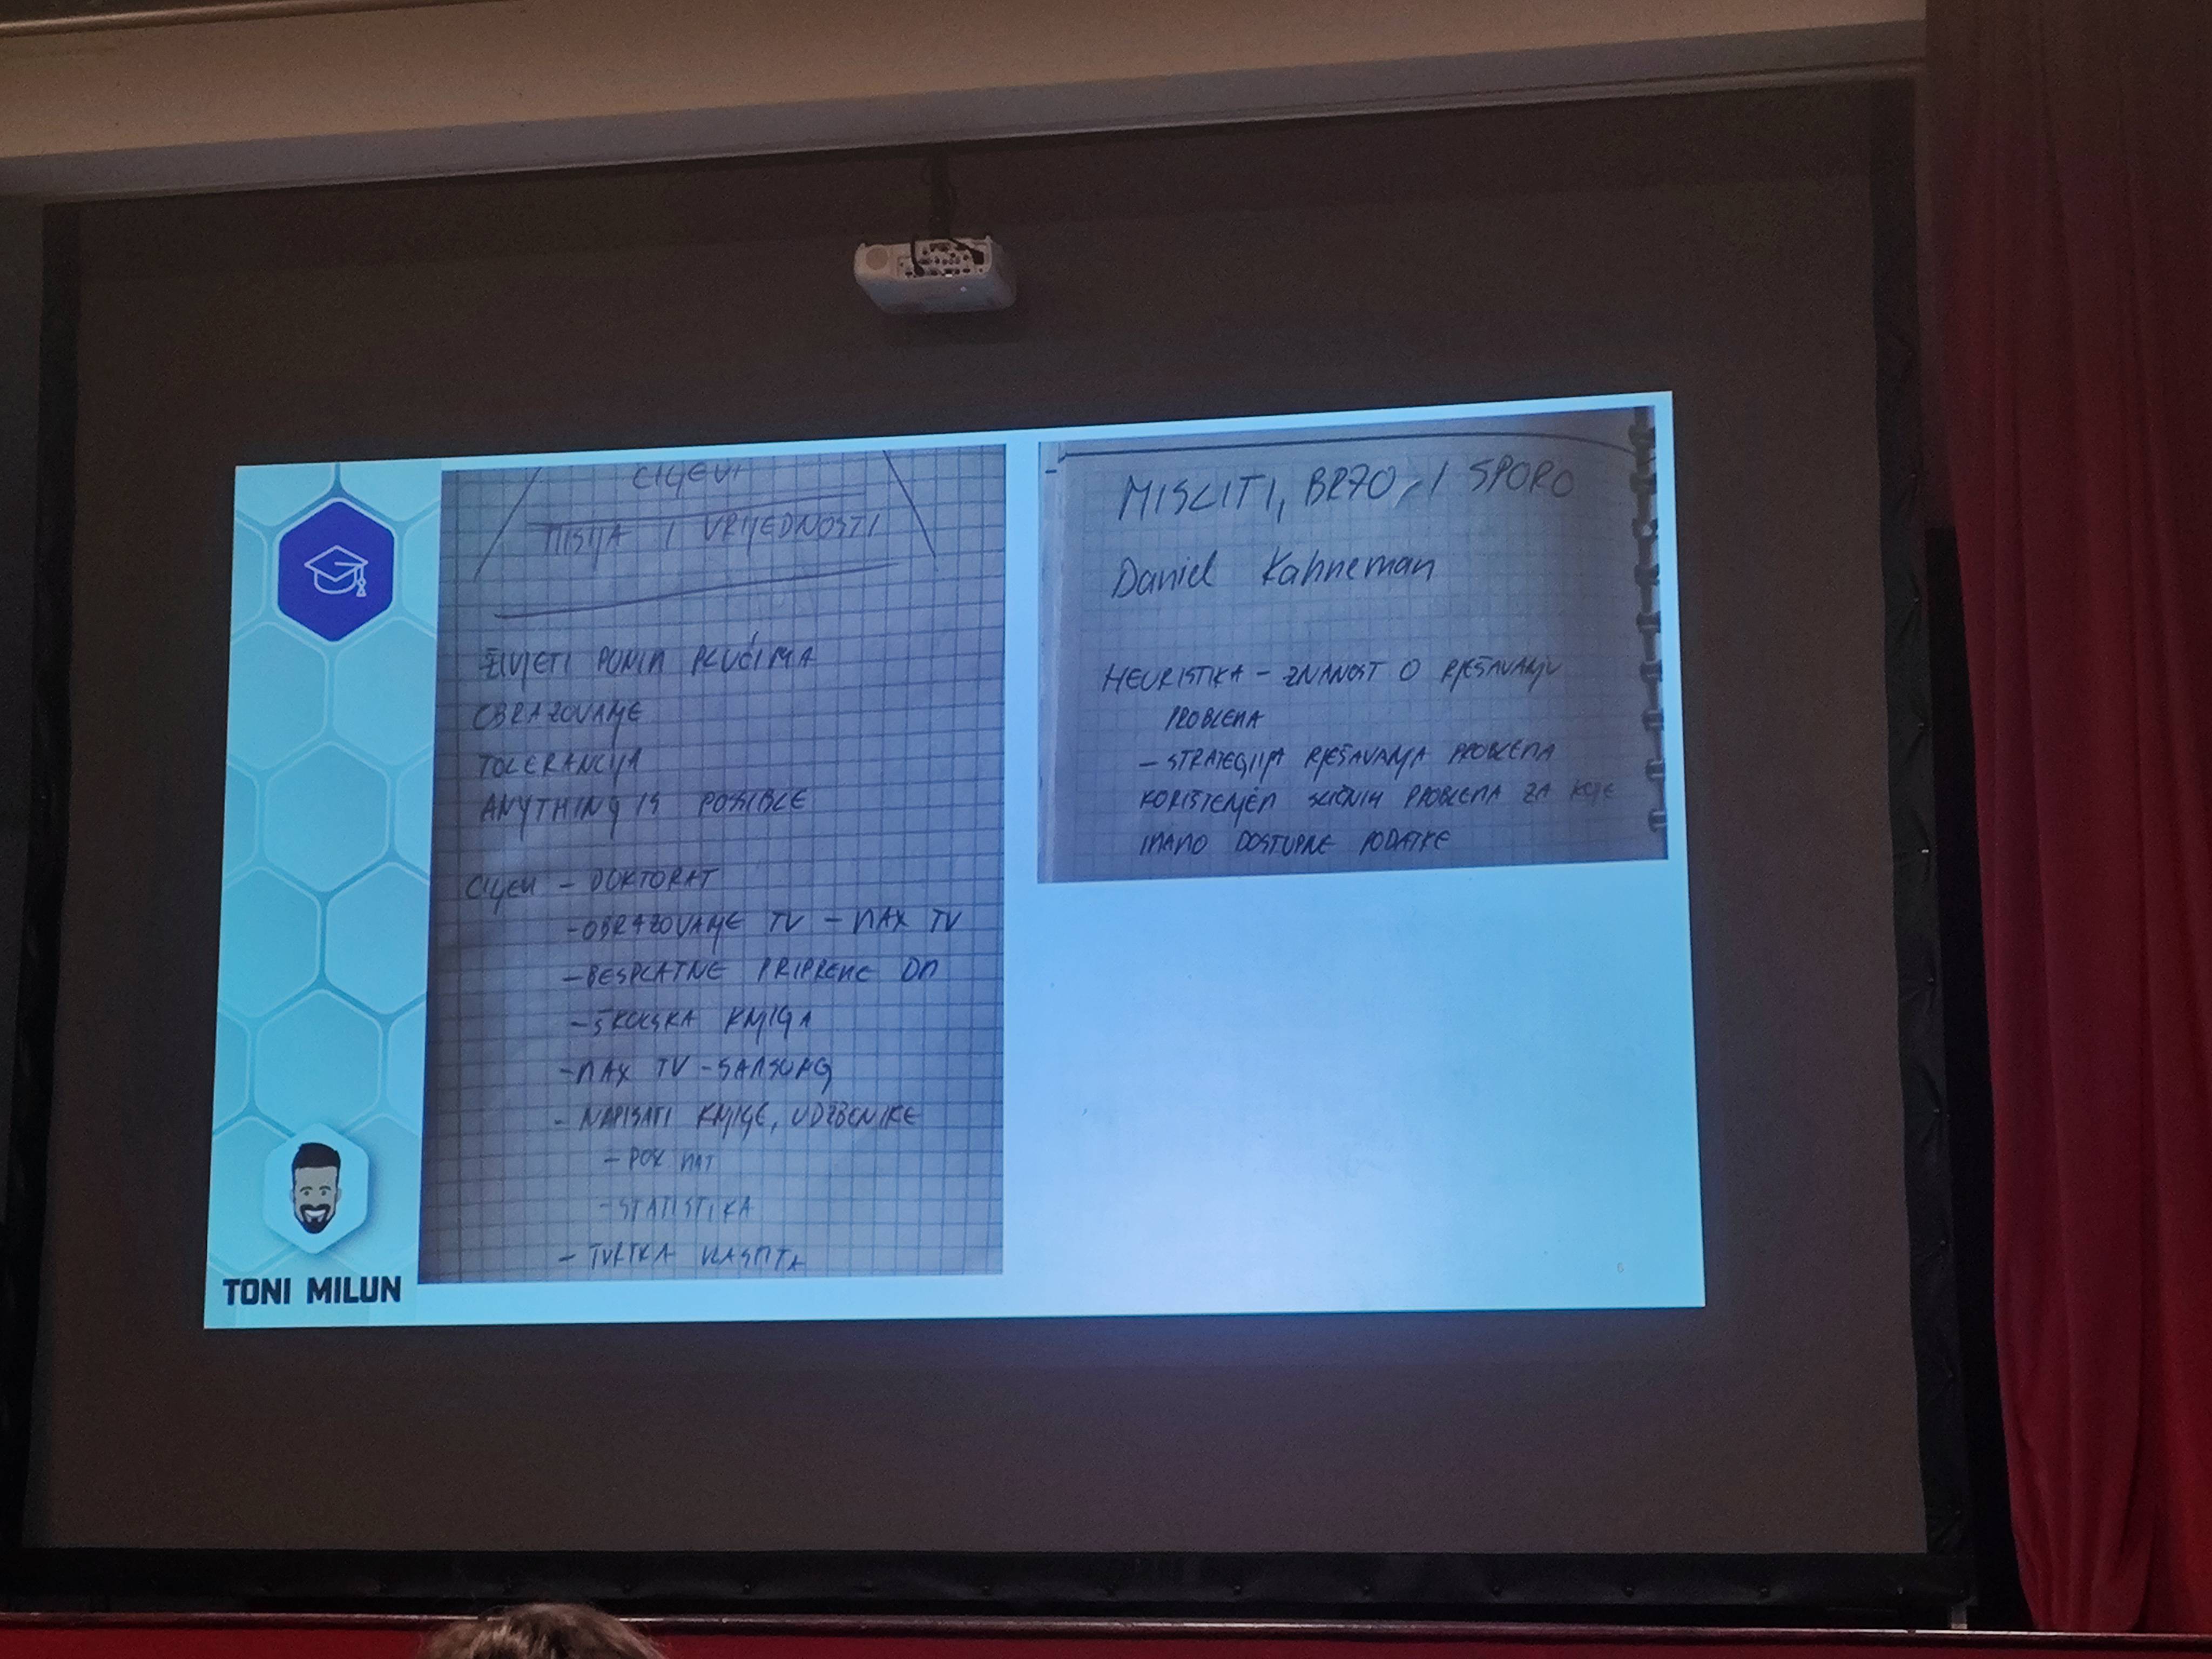 CILJEVI
MISIJA I VRIJEDNOSTI
ŽIVJETI PUNIM PLUĆIMA
OBRAZOVANJE
TOLERANCIJA
ANYTHING IS POSSIBLE
CILJEVI - DOKTORAT
- OBRAZOVANJE TV - MAX TV
- BESPLATNE PRIPREME DM
- ŠKOLSKA KNJIGA
- MAX TV - SAMSUNG
- NAPISATI KNJIGE, UDŽBENIKE
- POSL MAT
- STATISTIKA
- TVRTKA VLASTITA
MISLITI, BRZO, I SPORO
Daniel Kahneman
HEURISTIKA - ZNANOST O RJEŠAVANJU
PROBLEMA
- STRATEGIJA RJEŠAVANJA PROBLEMA
KORIŠTENJEM SLIČNIH PROBLEMA ZA KOJE
IMAMO DOSTUPNE PODATKE
TONI MILUN
6